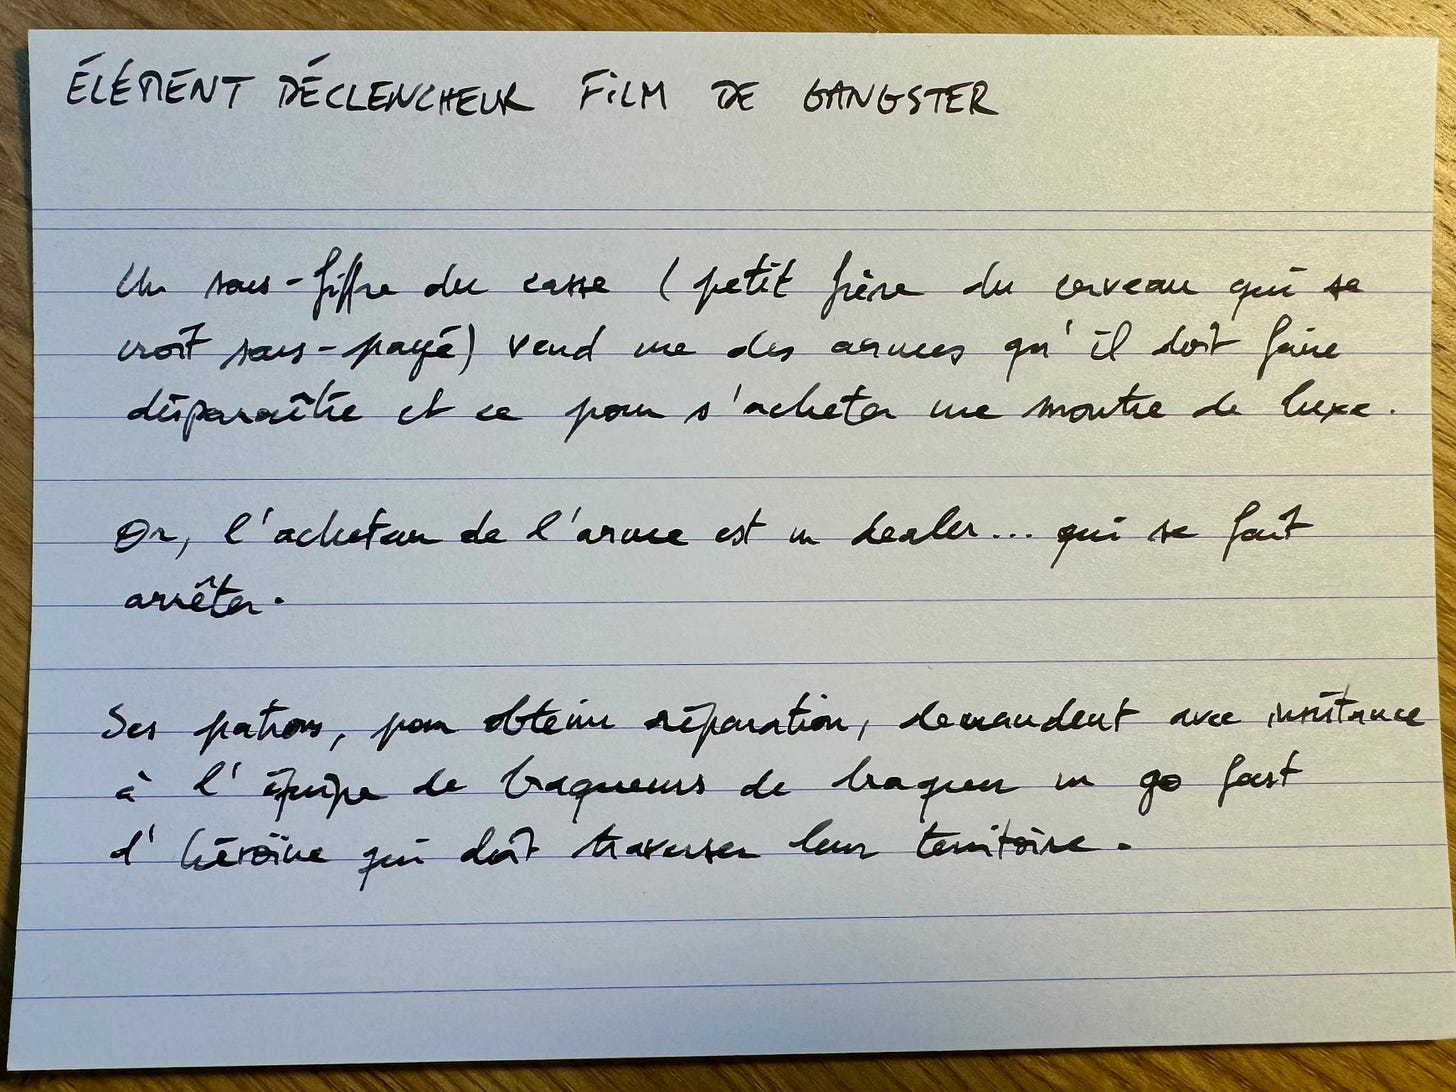 ÉLÉMENT DÉCLENCHEUR FILM DE GANGSTER
Un sous-fiffre du casse (petit frère du cerveau qui se
croit sous-payé) vend une des armes qu'il doit faire
disparaître et ce pour s'acheter une montre de luxe.
Or, l'acheteur de l'arme est un dealer... qui se fait
arrêter.
Ses patrons, pour obtenir réparation, demandent avec insistance
à l'équipe de braqueurs de braquer un go fast
d'héroïne qui doit traverser leur territoire.